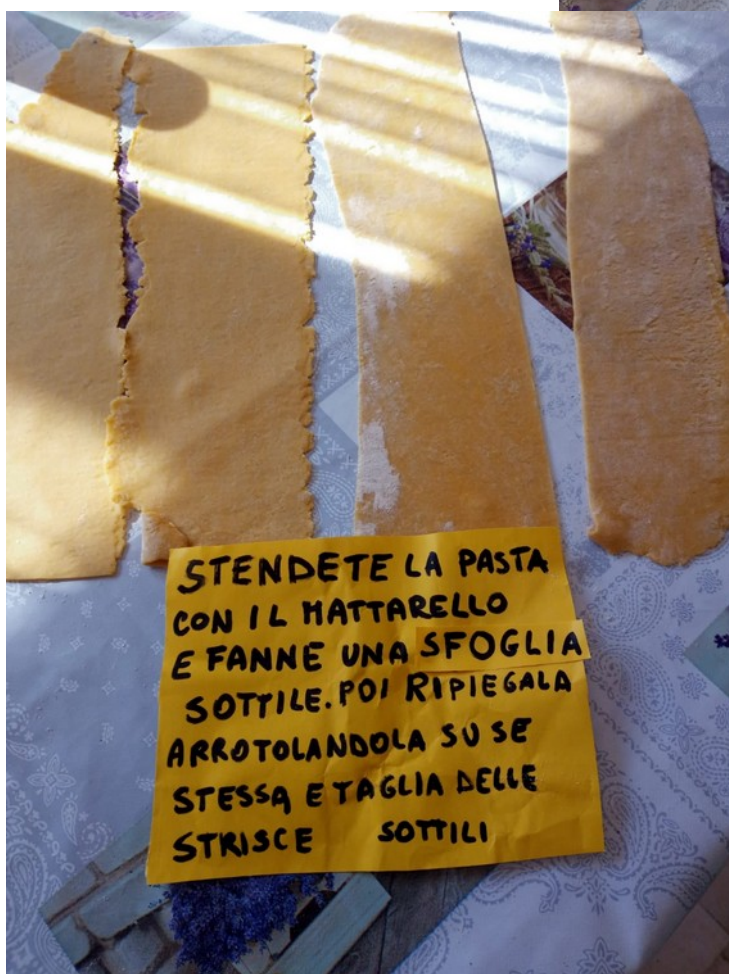 STENDETE LA PASTA
CON IL MATTARELLO
E FANNE UNA SFOGLIA
SOTTILE. POI RIPIEGALA
ARROTOLANDOLA SU SE
STESSA E TAGLIA DELLE
STRISCE SOTTILI